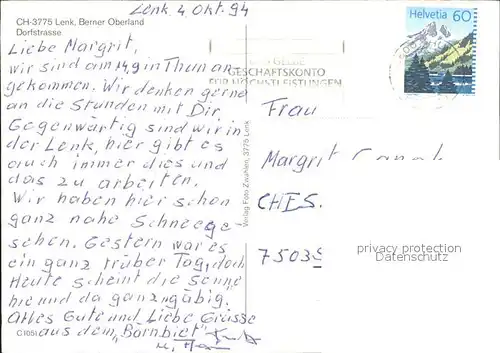 Lenk, 4. Okt. 94
CH-3775 Lenk, Berner Oberland
Dorfstrasse
Helvetia 60
Liebe Margrit,
wir sind am 14,9 in Thun an-
gekommen. Wir denken gerne
an die Stunden mit Dir.
Gegenwärtig sind wir in
der Lenk, hier gibt es
auch immer dies und
das zu arbeiten.
Wir haben hier schon
ganz nahe Schnee ge
sehen. Gestern war es
ein ganz trüber Tag, doch
Heute scheint die Sonne
hie und da ganz "gäbig.
Alles Gute und Liebe Grüsse
aus dem "Bärnbiet"
C 1051
GELBE
GESCHÄFTSKONTO
FÜR HÖCHSTLEISTUNGEN
Verlag Foto Zwahlen, 3775 Lenk
Frau
Margrit
CHES.
7503
privacy protection
Watermark